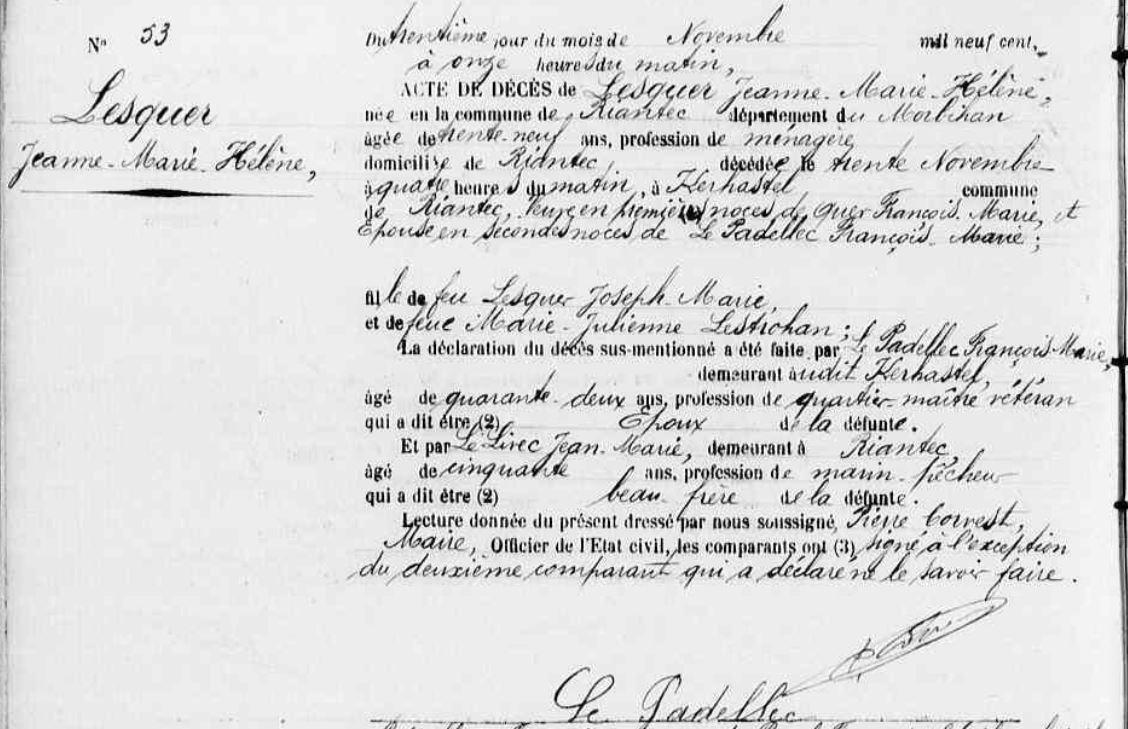 N° 53
Lesquer
Jeanne-Marie-Hélène,
Du trentième jour du mois de Novembre mil neuf cent,
à onze heures du matin,
ACTE DE DÉCÈS de Lesquer Jeanne-Marie-Hélène,
née en la commune de Riantec département du Morbihan
âgée de trente-neuf ans, profession de ménagère
domiciliée de Riantec, décédée le trente Novembre
à quatre heures du matin, à Kerhastel commune
de Riantec, Veuve en premières noces de Quer François-Marie, et
Epouse en secondes noces de Le Padellec François-Marie;
fille de feu Lesquer Joseph-Marie,
et de feue Marie-Julienne Lestrohan;
La déclaration du décès sus-mentionné a été faite par Le Padellec François-Marie,
demeurant audit Kerhastel,
âgé de quarante-deux ans, profession de quartier-maître vétéran
qui a dit être (2) Epoux de la défunte.
Et par Le Livec Jean-Marie, demeurant à Riantec,
âgé de cinquante ans, profession de marin-pêcheur
qui a dit être (2) beau-frère de la défunte.
Lecture donnée du présent dressé par nous soussigné, Pierre Corvest,
Maire, Officier de l'Etat civil, les comparants ont (3) signé à l'exception
du deuxième comparant qui a déclaré ne le savoir faire.
Le Padellec